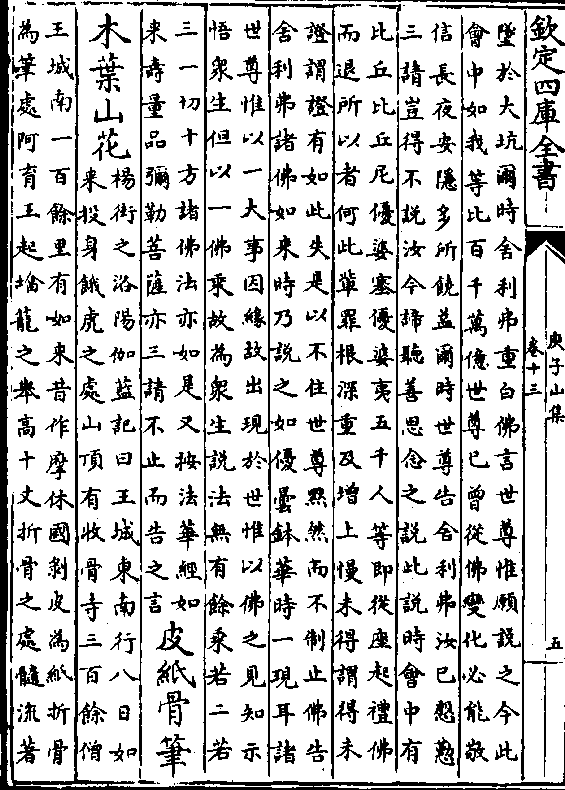 欽定四庫全書
庾子山集
卷十三
五
墜於大坑爾時舍利弗重白佛言世尊惟願說之今此
會中如我等比百千萬億世尊已曾從佛變化必能敬
信長夜安隱多所饒益爾時世尊告舍利弗汝已慇懃
三請豈得不說汝今諦聽善思念之說此說時會中有
比丘比丘尼優婆塞優婆夷五千人等即從座起禮佛
而退所以者何此輩罪根深重及增上慢未得謂得未
證謂證有如此失是以不住世尊黙然而不制止佛告
舍利弗諸佛如來時乃說之如優曇鉢華時一現耳諸
世尊惟以一大事因緣故出現於世惟以佛之見知示
悟衆生但以一佛乘故為衆生說法無有餘乘若二若
三一切十方諸佛法亦如是又按法華經如
來壽量品彌勒菩薩亦三請不止而告之言
皮紙骨筆
木葉山花
楊衒之洛陽伽藍記曰王城東南行八日如
來投身餓虎之處山頂有收骨寺三百餘僧
王城南一百餘里有如來昔作摩休國剝皮為紙折骨
為筆處阿育王起塔籠之舉高十丈折骨之處髓流著